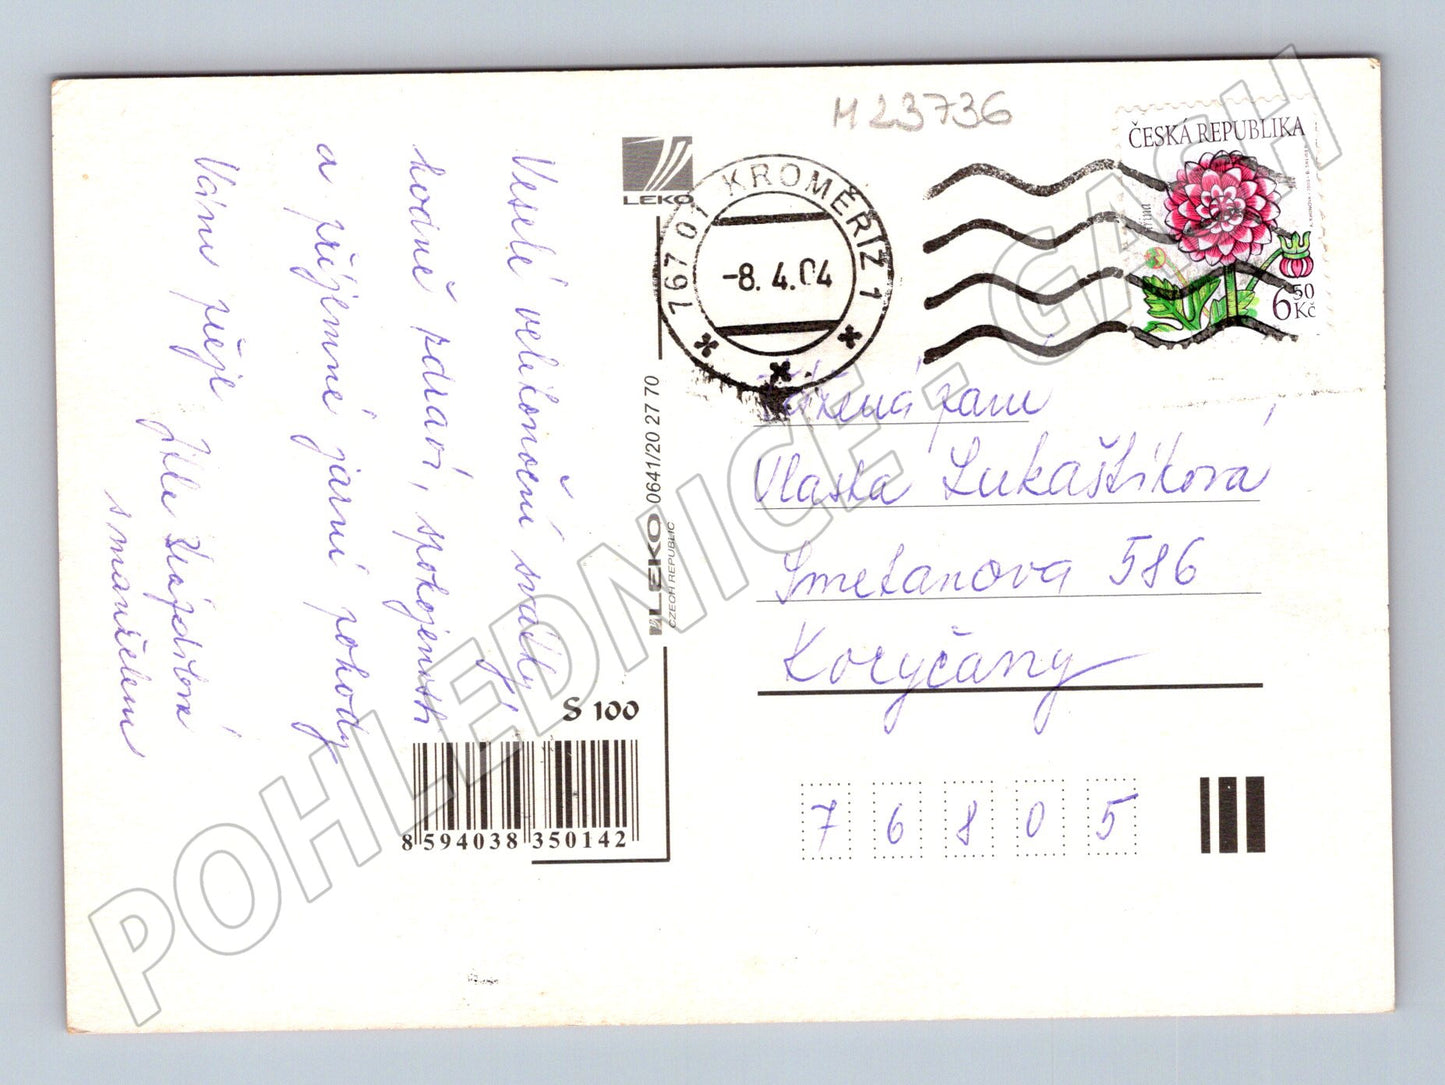 M 23736
ČESKÁ REPUBLIKA
6 50 Kč
LEKO
767 01 KROMĚŘÍŽ 1
-8. 4. 04
Veselé velikonoční svátky,
hodně zdraví, spokojenosti
a příjemné jarní pohody
Vám přeje
s manželem
LEKO 0641/20 27 70
CZECH REPUBLIC
S 100
8 594038 350142
Vážená paní
Vlasta Lukaštíková
Smetanova 586
Koryčany
7 6 8 0 5
POHLEDNICE - GASH